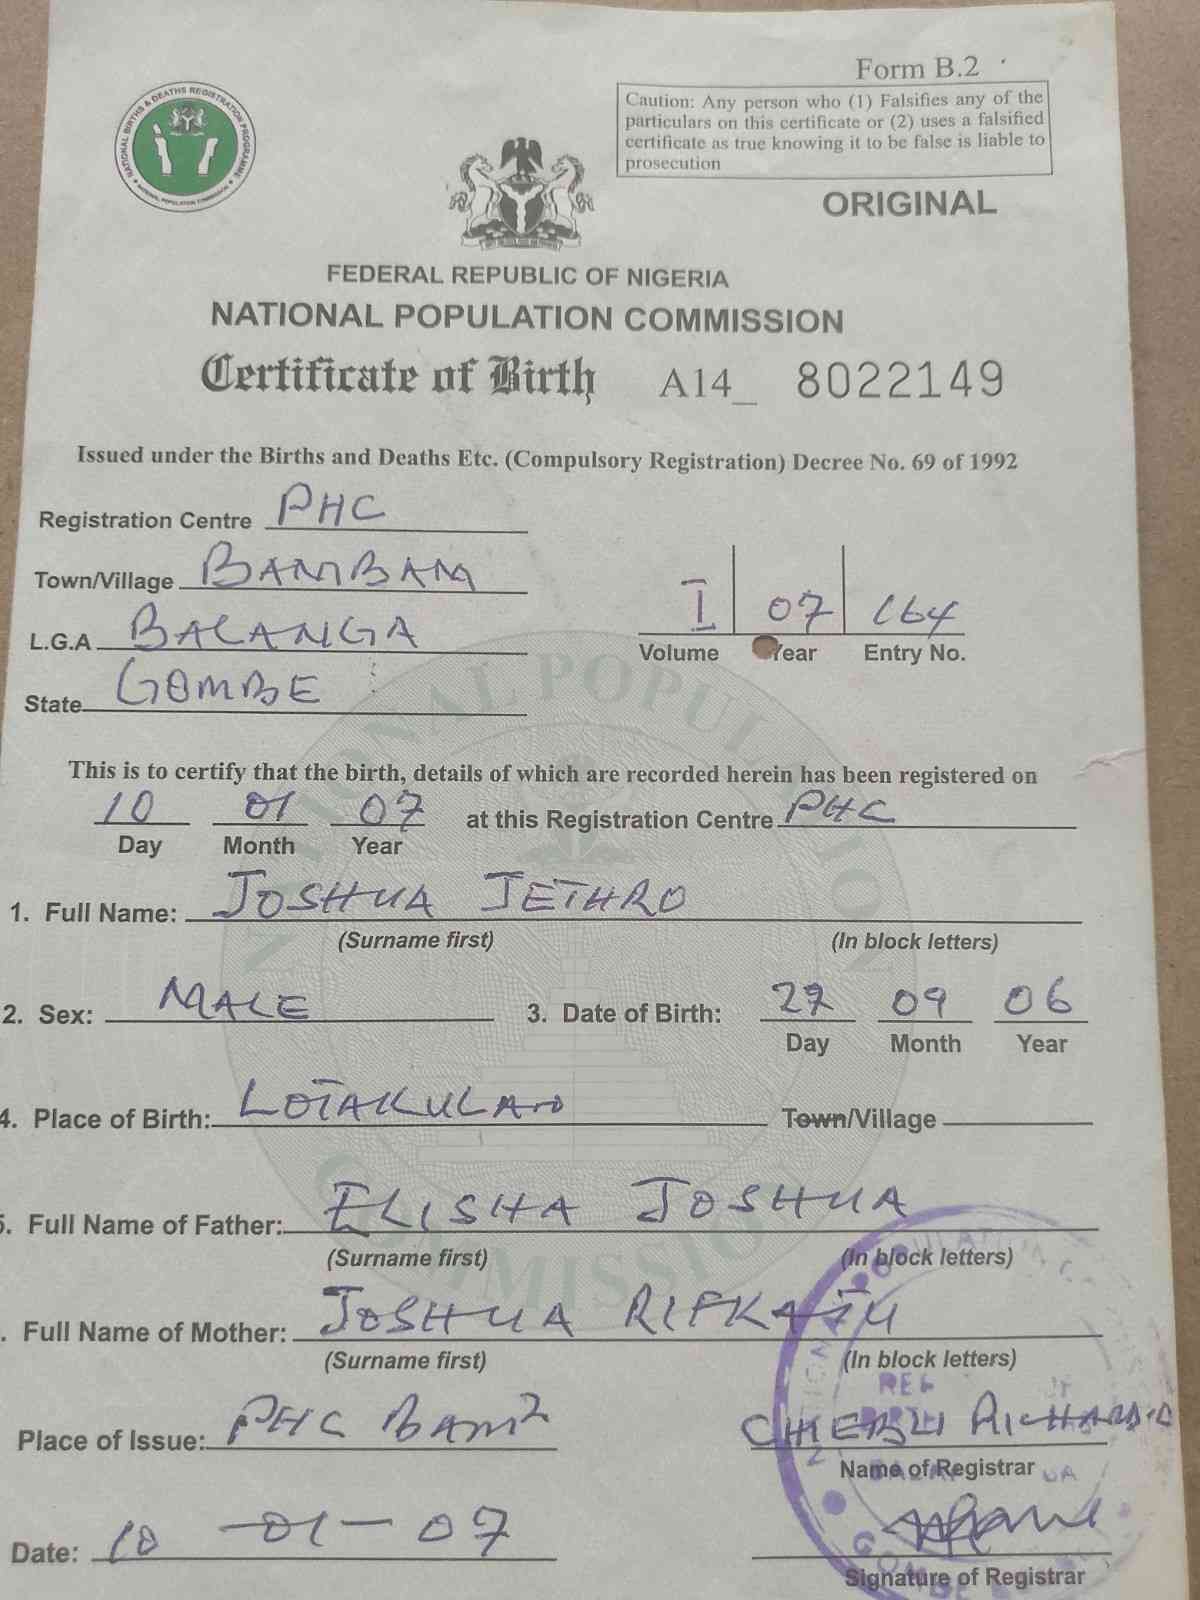 Form B.2
NATIONAL BIRTHS & DEATHS REGISTRATION PROGRAMME
NATIONAL POPULATION COMMISSION
Caution: Any person who (1) Falsifies any of the
particulars on this certificate or (2) uses a falsified
certificate as true knowing it to be false is liable to
prosecution
ORIGINAL
FEDERAL REPUBLIC OF NIGERIA
NATIONAL POPULATION COMMISSION
Certificate of Birth A14_ 8022149
Issued under the Births and Deaths Etc. (Compulsory Registration) Decree No. 69 of 1992
Registration Centre PHC
Town/Village BAMBAM
L.G.A BALANGA
State GOMBE
I 07 164
Volume Year Entry No.
This is to certify that the birth, details of which are recorded herein has been registered on
10 01 07 at this Registration Centre PHC
Day Month Year
1. Full Name: JOSHUA JETHRO
(Surname first) (In block letters)
2. Sex: MALE 3. Date of Birth: 27 09 06
Day Month Year
4. Place of Birth: LOTAKULAN Town/Village
5. Full Name of Father: ELISHA JOSHUA
(Surname first) (In block letters)
. Full Name of Mother: JOSHUA RIFKATU
(Surname first) (In block letters)
Place of Issue: PHC BAM² RICHARD
Name of Registrar
Date: 10-01-07
Signature of Registrar
NATIONAL POPULATION COMMISSION